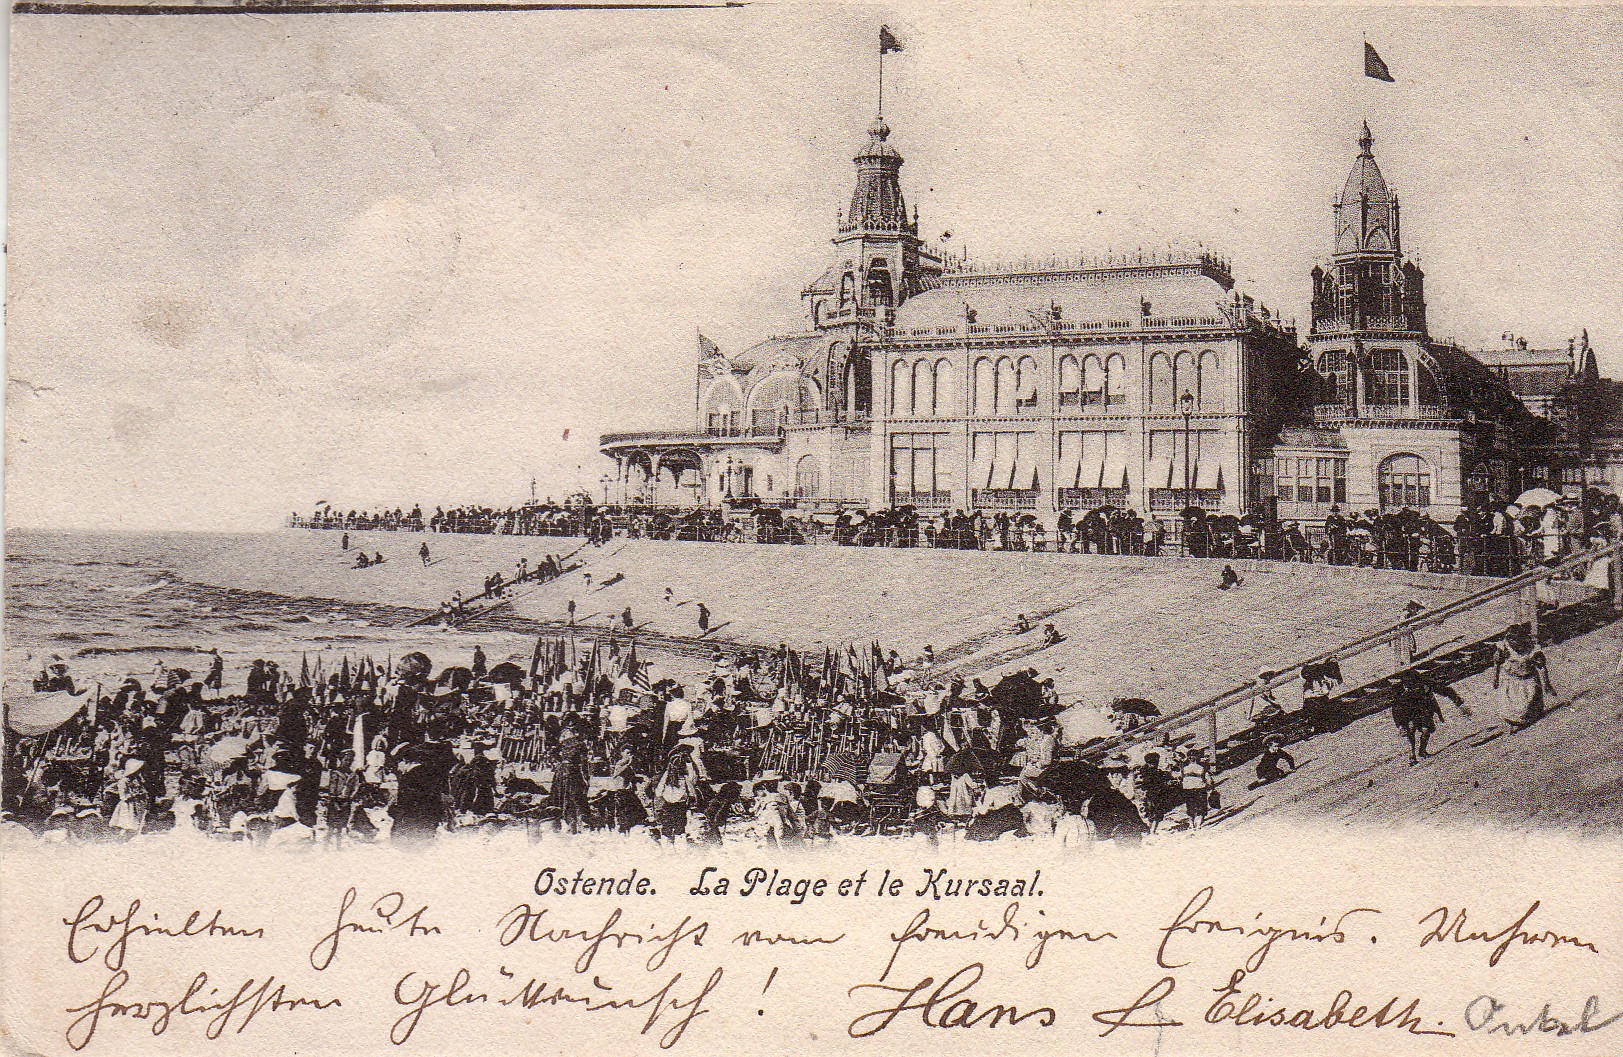 Ostende. La Plage et le Kursaal.
Erhielten heute Nachricht vom freudigen Ereignis. Unseren
herzlichsten Glückwunsch! Hans & Elisabeth. Onkel